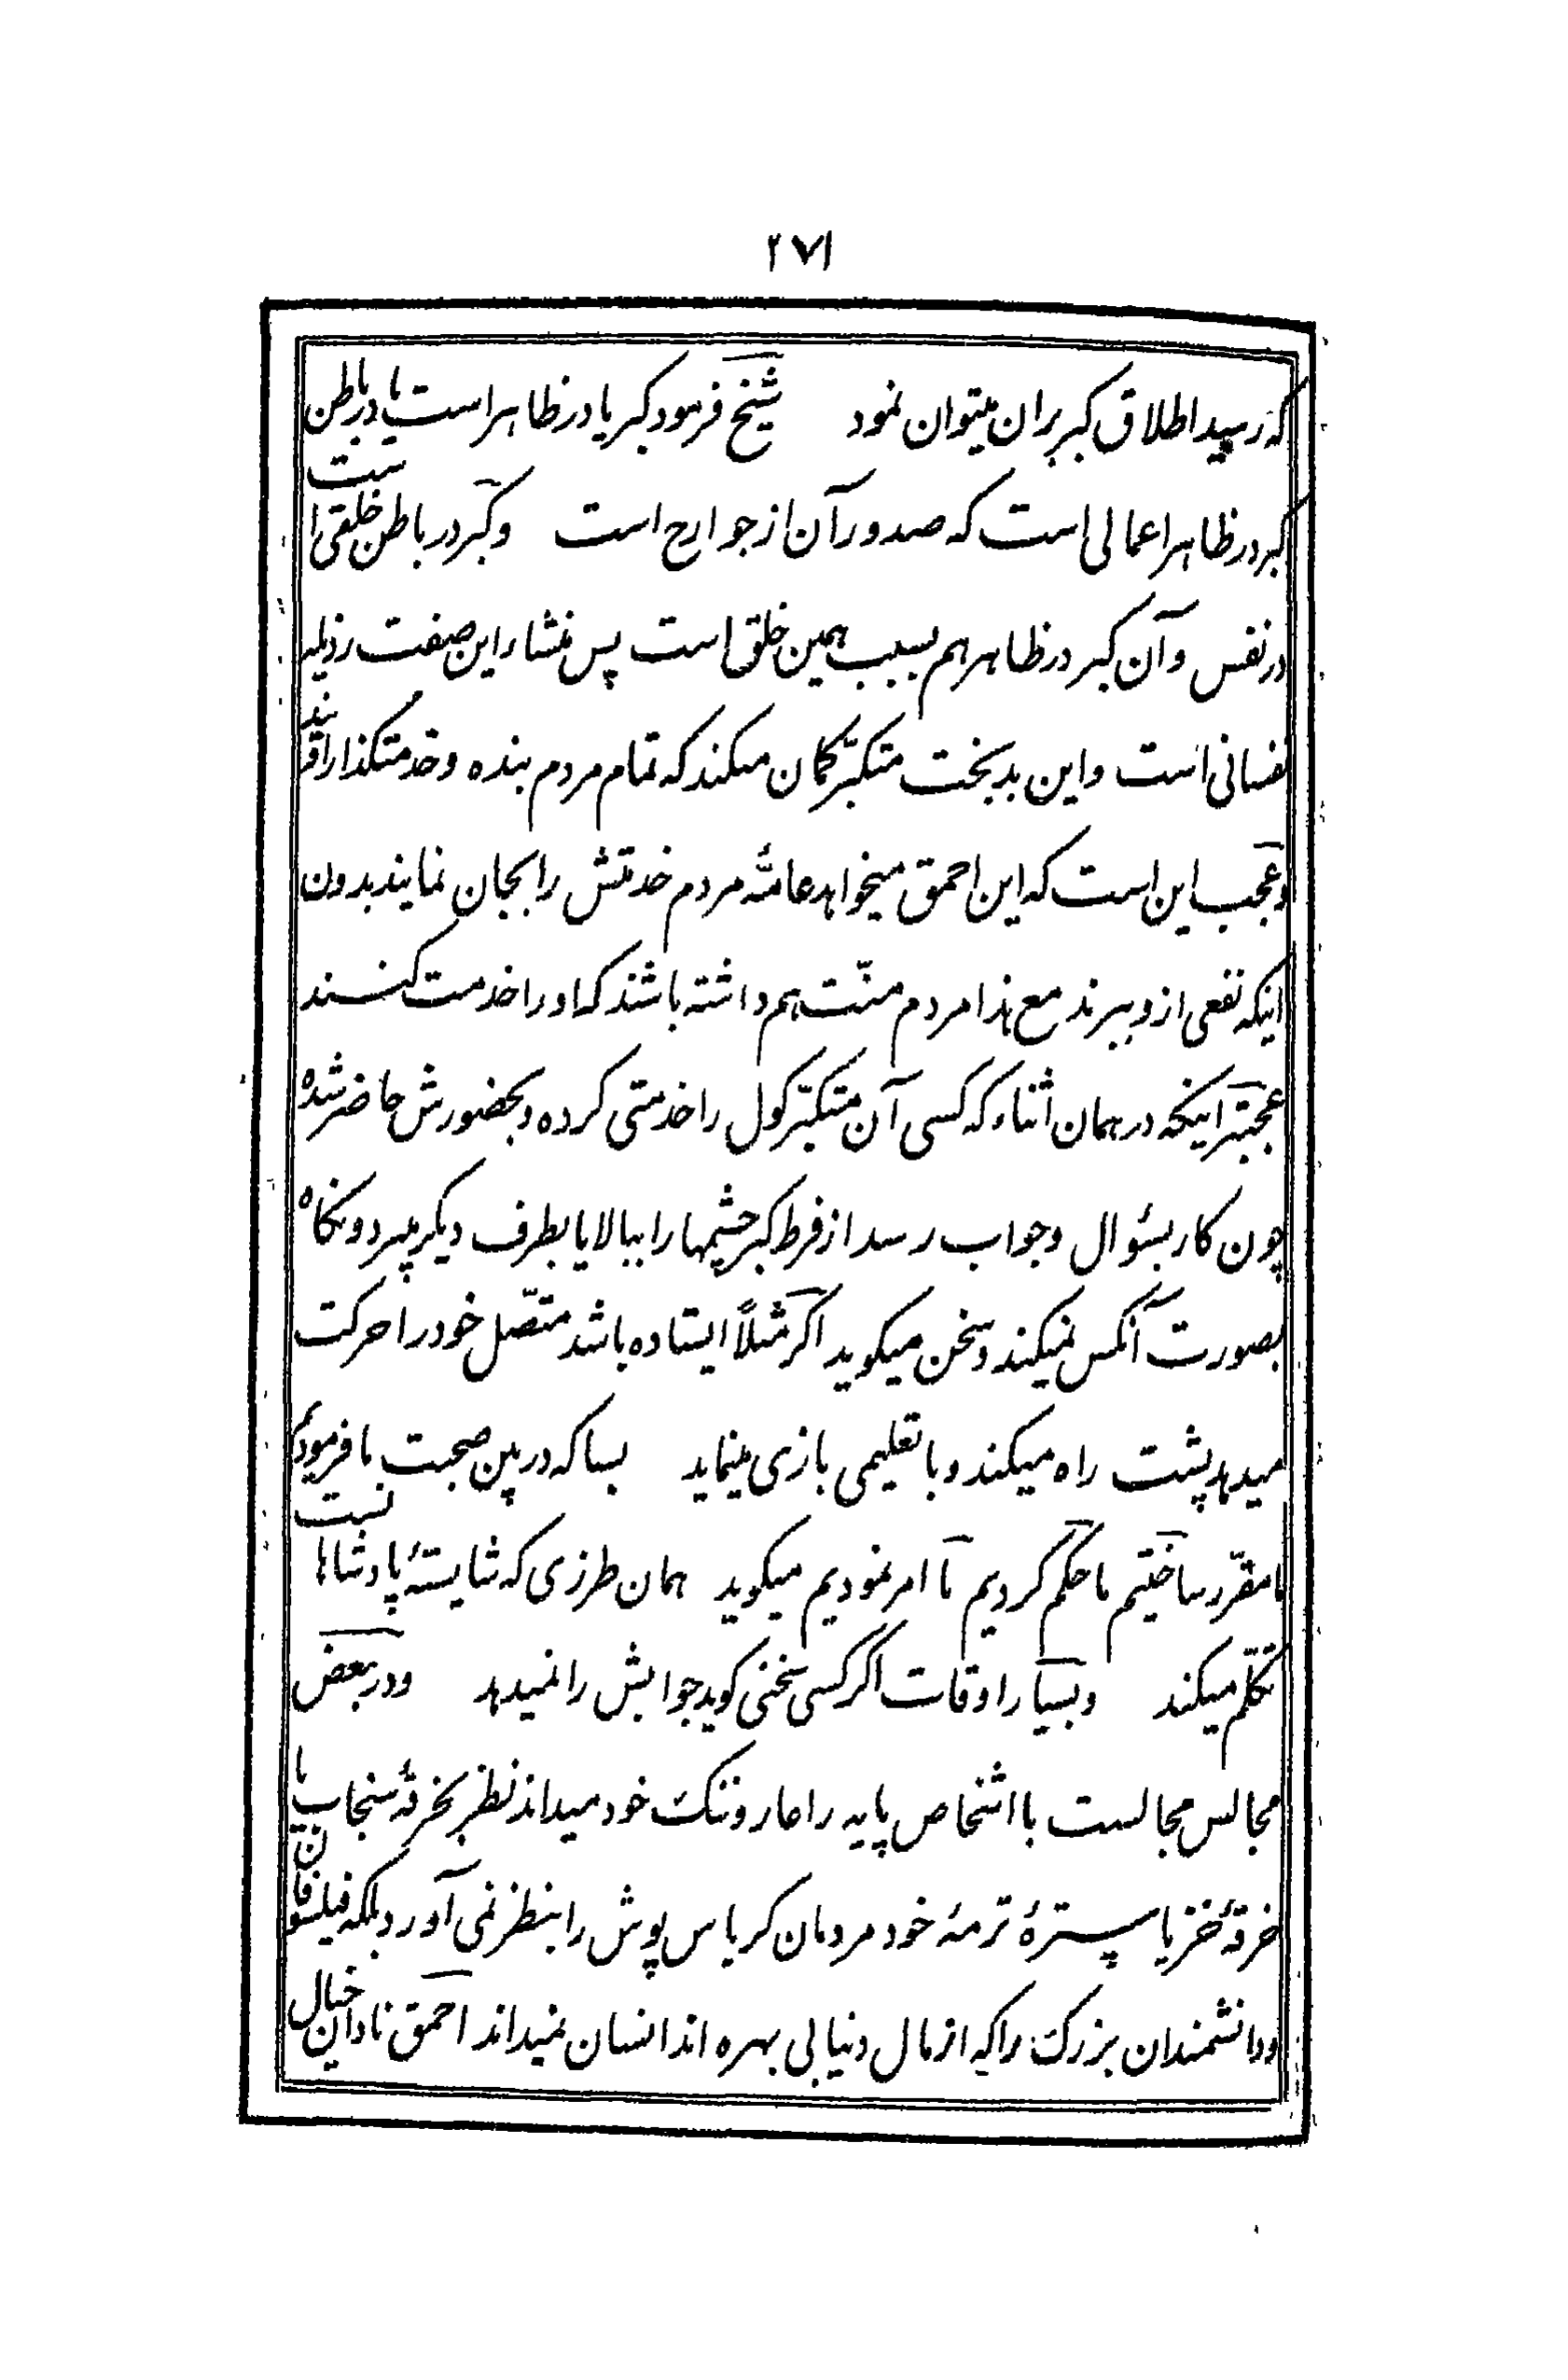 ۲۷۱
که رسید اطلاق کبر بران میتوان نمود شیخ فرمود کبر یا در ظاهر است یا در باطن
کبر در ظاهر اعمالی است که صدور آن از جوارح است و کبر در باطن خلقی است
در نفس و آن کبر در ظاهر هم بسبب همین خلق است پس منشاء این صفت رذیله
نفسانی است و این بدبخت متکبّر کمان میکند که تمام مردم بنده و خدمتکذار اویند
و عجب این است که این احمق میخواهد عامّهٔ مردم خدمتش را بجان نمایند بدون
اینکه نفعی ازو ببرند مع هذا مردم منّت هم داشته باشند که او را خدمت کنند
عجبتر اینکه در همان اثناء که کسی آن متکبّر کول را خدمتی کرده و بحضورش حاضر شده
چون کار بسؤال و جواب رسد از فرط کبر چشمها را ببالا یا بطرف دیکر میبرد و نکاه
بصورت آنکس نمیکند و سخن میکوید اکر مثلاً ایستاده باشد متّصل خود را حرکت
میدهد پشت راه میکند و با تعلیمی بازی مینماید بسا که در بین صحبت ما فرمودیم
ما مقرّر ساختیم ما حکم کردیم ما امر نمودیم میکوید همان طرزی که شایستهٔ پادشاهانست
تکلّم میکند و بسیار اوقات اکر کسی سخنی کوید جوابش را نمیدهد و در بعض
مجالس مجالست با اشخاص پایه را عار و ننک خود میداند نظر بخرقهٔ سنجاب یا
خرقهٔ خز یا سترهٔ ترمهٔ خود مردمان کرباس پوش را بنظر نمی آورد بلکه فیلسوفان
و دانشمندان بزرک را که از مال دنیا بی بهره اند انسان نمیداند احمق نادان خیال